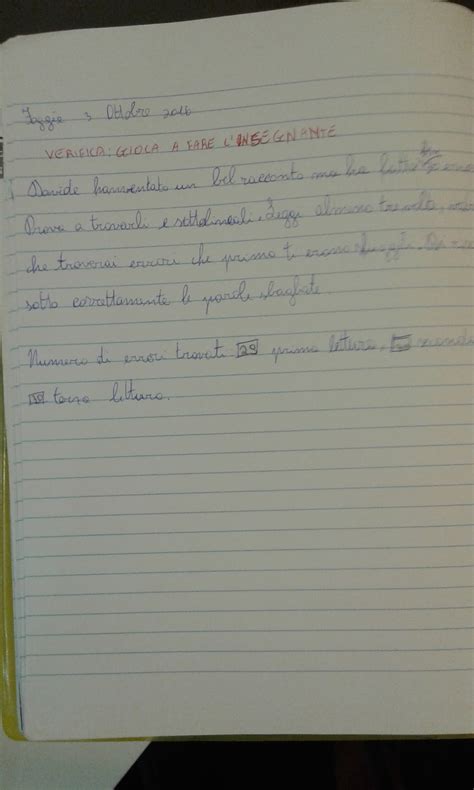 Foggia 3 Ottobre 2018
VERIFICA: GIOCA A FARE L'INSEGNANTE
Davide ha inventato un bel racconto ma ha fatto
Prova a trovarli e sottolineali. Leggi almeno tre volte,
che troverai errori che prima ti erano sfuggiti.
sotto correttamente le parole sbagliate.
Numero di errori trovati 29 prima lettura,
terza lettura.